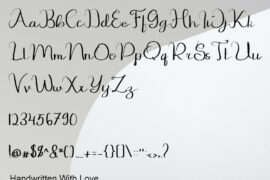 AaBbCcDdEeFfGgHhIiJjKk
LlMmNnOoPpQqRrSsTtUu
VvWwXxYyZz
1234567890
!@#$%^&*()_+=-{}[]\:;"<>,.?
Handwritten With Love